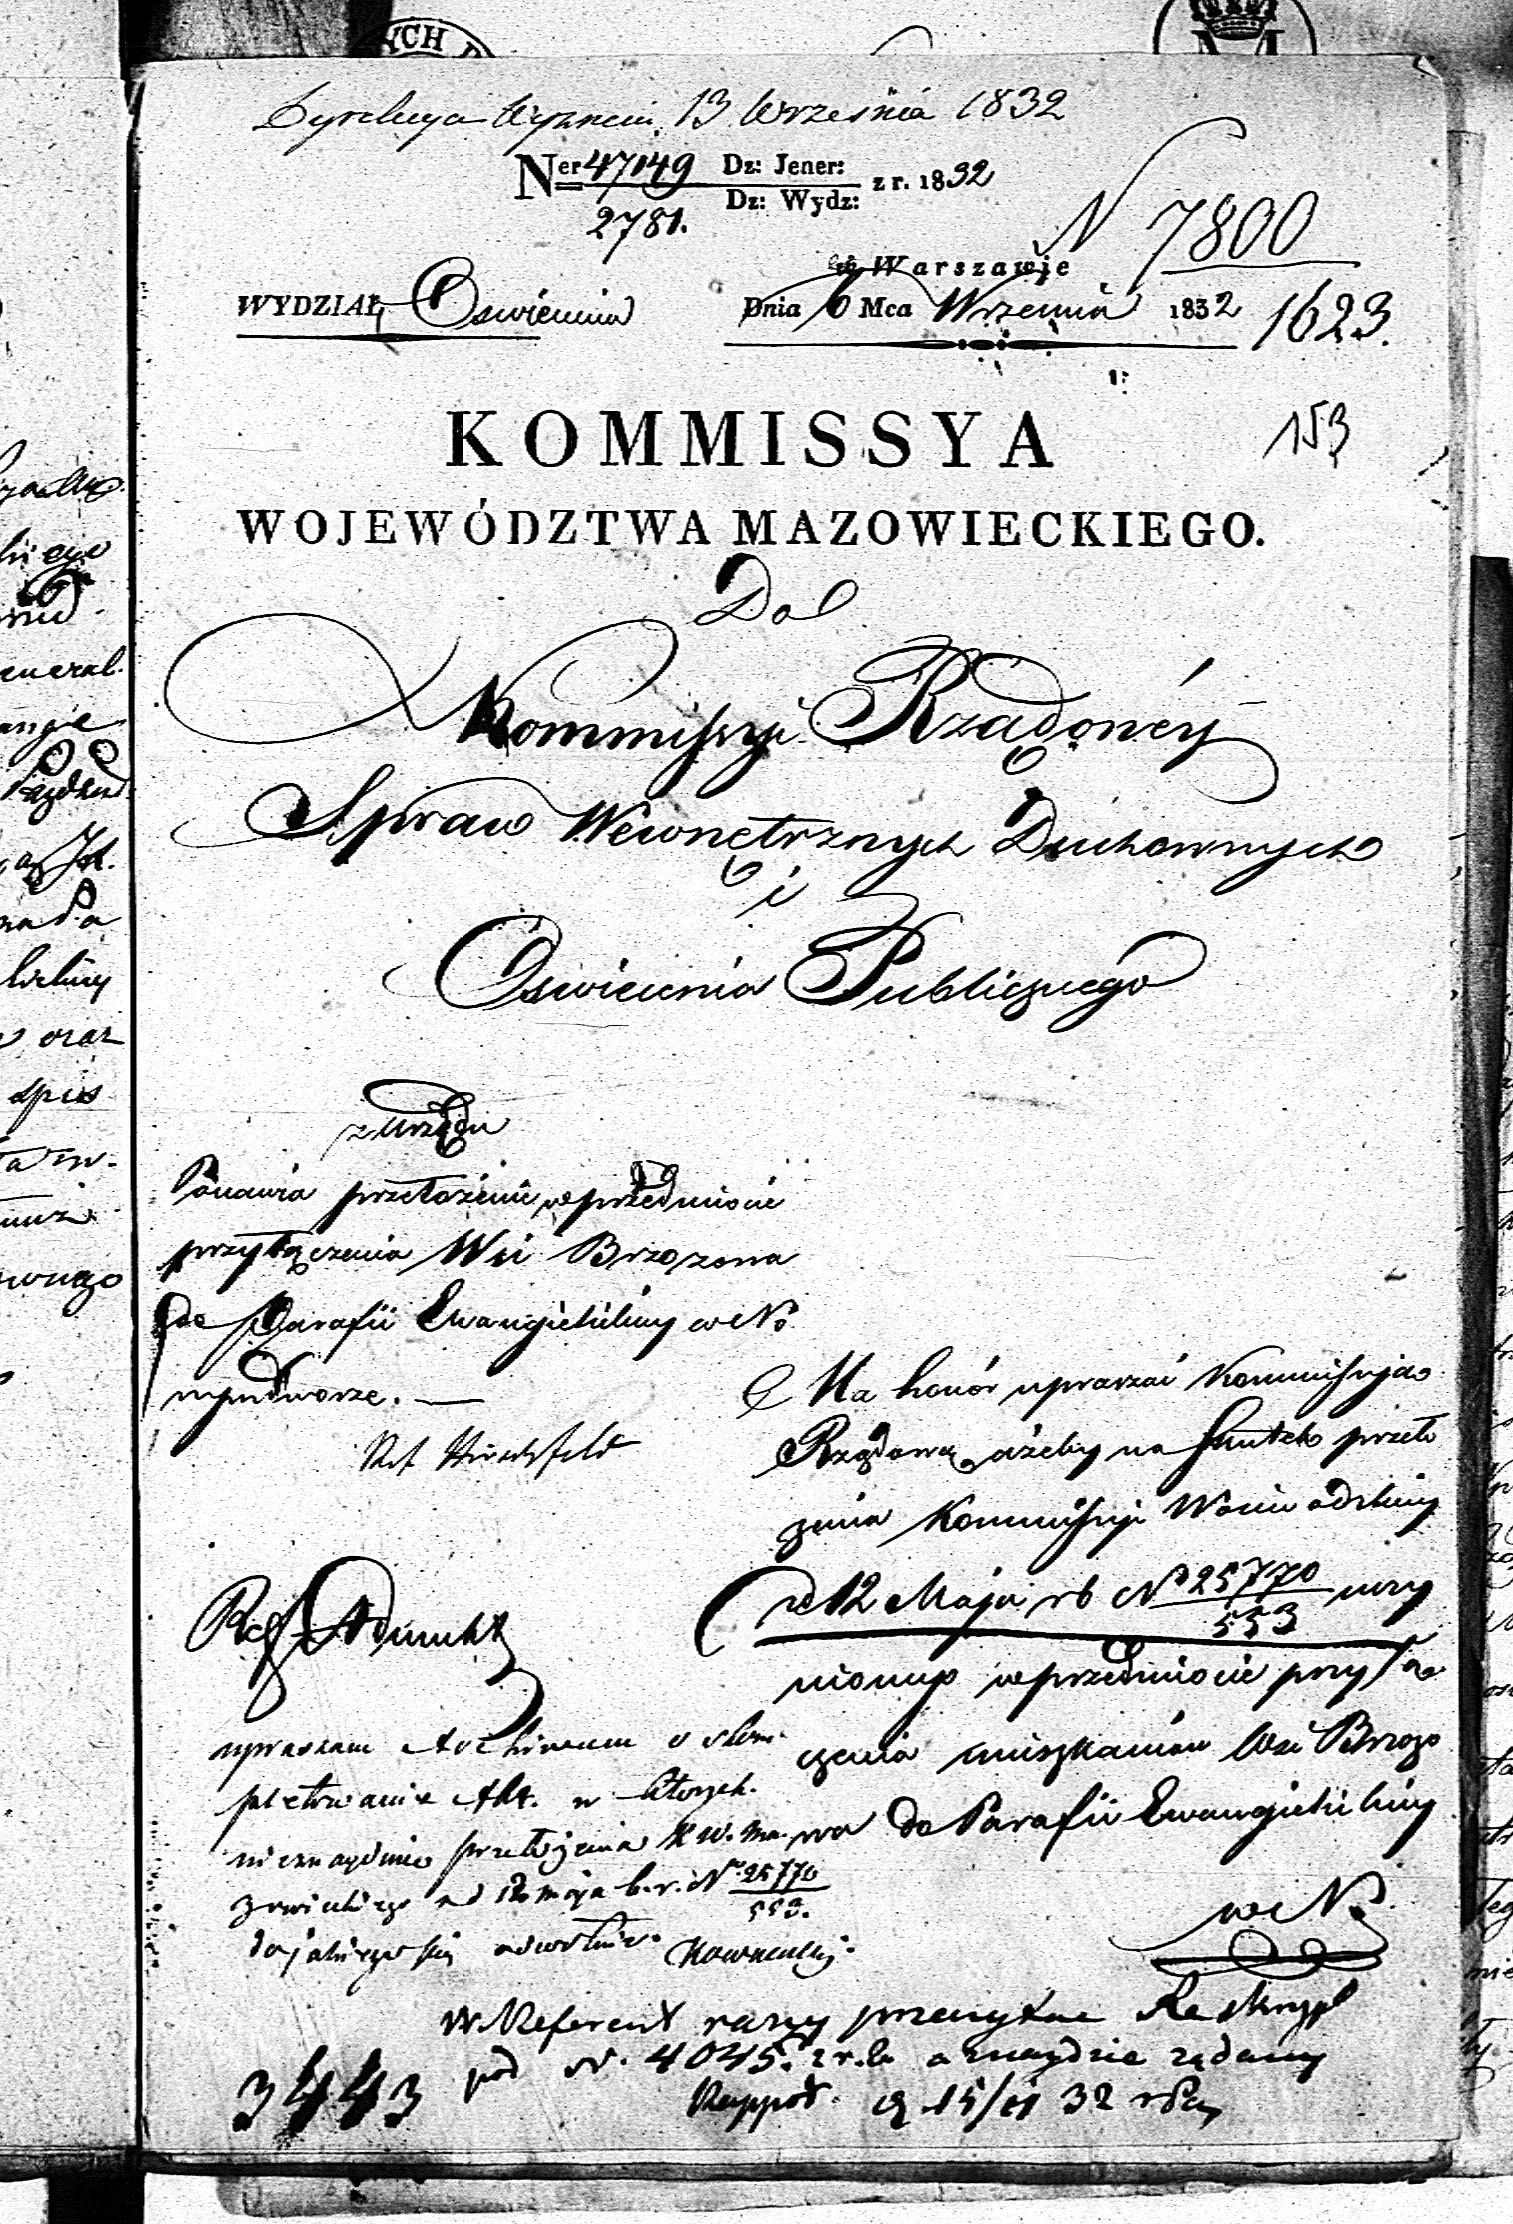 Dyrekcya Wyznań 13 Września 1832
Ner 47149 Dz: Jener: z r. 1832
2781. Dz: Wydz:
N 7800
1623.
w Warszawie
WYDZIAŁ Oswiecenia Dnia 6 Mca Wrzesnia 1832
153
KOMMISSYA
WOJEWÓDZTWA MAZOWIECKIEGO.
Do
Kommissyi Rządowéy
Spraw Wewnętrznych Duchownych
i
Oswiecenia Publicznego
z Urzędu
Ponawia przełożenie w przedmiocie
przyłączenia Wsi Brzozowa
do Parafii Ewangielickiey w No
wymdworze. —
Ref. Hirschfeld
Ma honór upraszać Kommissyją
Rządową ażeby na skutek przeło
żenia Kommissyi Woiewódzkiey
z d 12 Maja rb No 25770 uczy
553
nionego w przedmiocie przyłą
czenia mieszkańców Wsi Brzozo
wa do Parafii Ewangielickiey
w No
Ref.
upraszam Archiwum o skom
pletowanie Akt. w których
nieznayduie przełożenia K. W. Ma
zowieckiego z d 12 maja b. r. No 25770
553.
do jakiego się odwołuie.
W Referent raczy Reskrypt
pod N. 4045. z r. b. a znaydzie żądany
Rapport. 15/11 32
3443
YCH